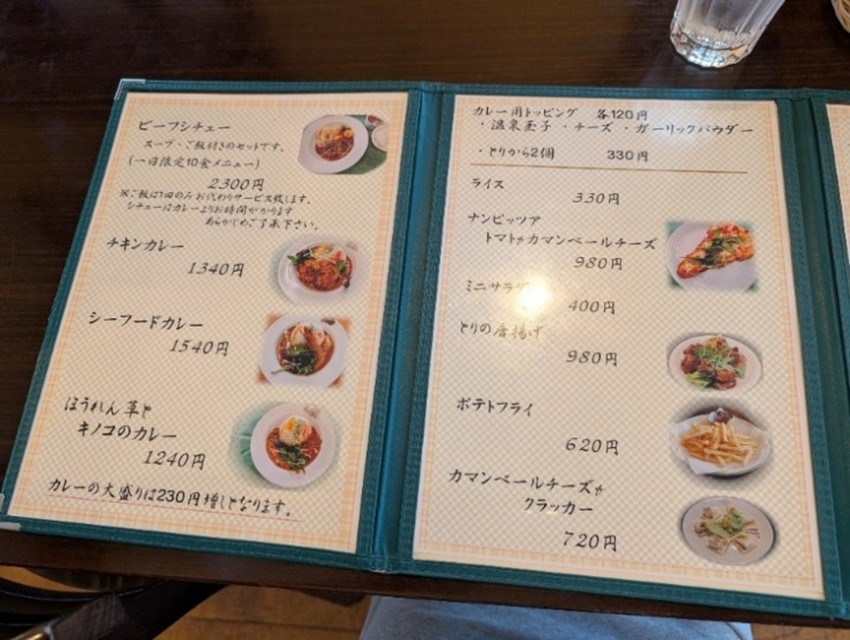 ビーフシチュー
スープ・ご飯付きのセットです。
(一日限定10食メニュー)
2300円
※ご飯は1回のみお代わりサービス致します。
シチューはカレーよりお時間がかります
あらかじめご了承下さい。
チキンカレー
1340円
シーフードカレー
1540円
ほうれん草と
キノコのカレー
1240円
カレーの大盛りは230円増しとなります。
カレー用トッピング 各120円
・温泉玉子 ・チーズ ・ガーリックパウダー
・とりから2個 330円
ライス
330円
ナンピッツア
トマトとカマンベールチーズ
980円
ミニサラダ
400円
とりの唐揚げ
980円
ポテトフライ
620円
カマンベールチーズと
クラッカー
720円